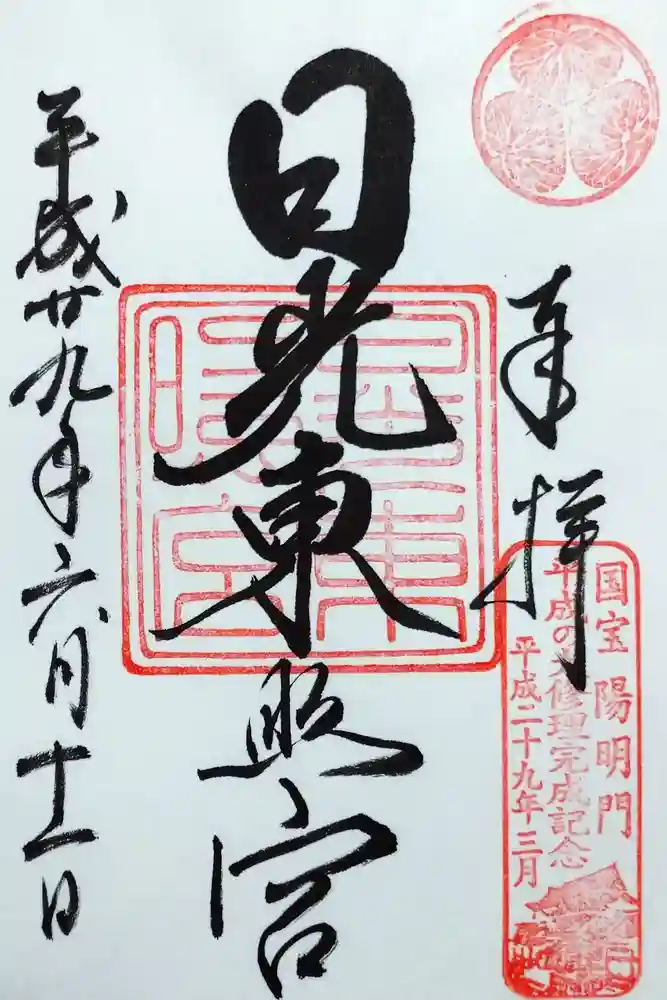 奉拝
国宝 陽明門
平成の大修理完成記念
平成二十九年三月
日光東照宮
東照宮
平成廿九年六月十一日